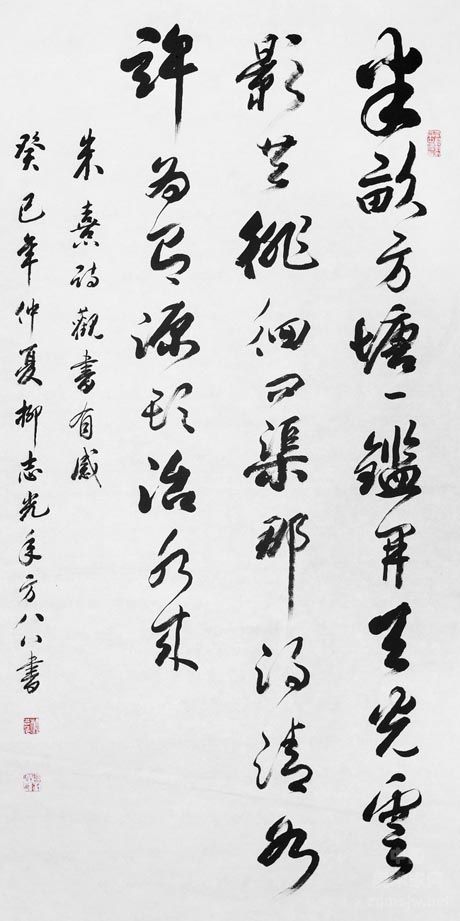 半畝方塘一鑑開天光雲
影共徘徊问渠那得清如
許为有源头活水来
朱熹诗觀書有感
癸巳年仲夏柳志光年方八八書